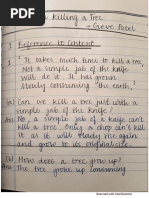 Killing a Tree
- Gieve Patel
I Reference to Context
1 "It takes much time to kill a tree,
Not a simple jab of the knife
Will do it. It has grown
Slowly consuming the earth,
(a) Can we kill a tree just with a
simple jab of the knife?
Ans No, a simple jab of knife can't
kill a tree. Only a chop can't kill
it as it will slowly rise again
and grow to its original size.
(b) How does a tree grow up?
Ans The tree grows up consuming
Scanned with CamScanner